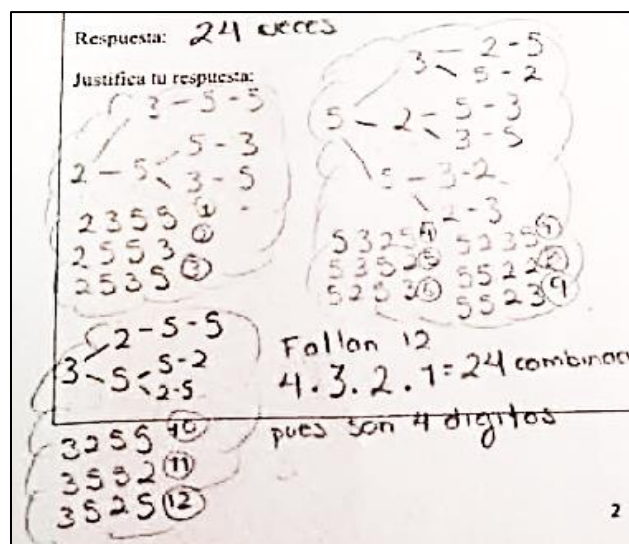 Respuesta: 24 veces
Justifica tu respuesta:
3 - 5 - 5
2 - 5
5 - 3
3 - 5
2 3 5 5 ①
2 5 5 3 ②
2 5 3 5 ③
5
3
2 - 5
5 - 2
2
5 - 3
3 - 5
5
3 - 2
2 - 3
5 3 2 5 ④
5 3 5 2 ⑤
5 2 5 3 ⑥
5 2 3 5 ⑦
5 5 2 2
5 5 2 3 ⑨
3
2 - 5 - 5
5
5 - 2
2 - 5
3 2 5 5 ⑩
3 5 5 2 ⑪
3 5 2 5 ⑫
Fallan 12
4 . 3 . 2 . 1 = 24 combinac
pues son 4 digitos
2